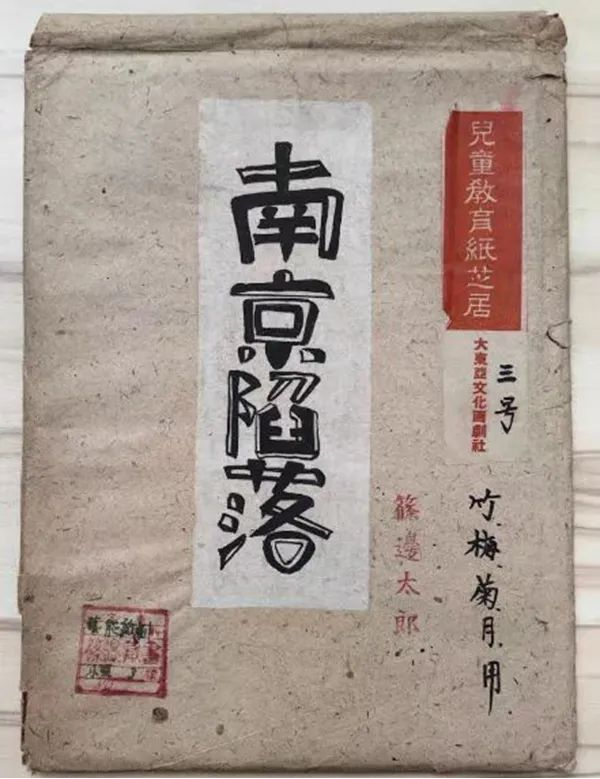 兒童教育紙芝居
大東亞文化画劇社
三号
竹、梅、菊、月、用
南京陥落
篠邊太郎